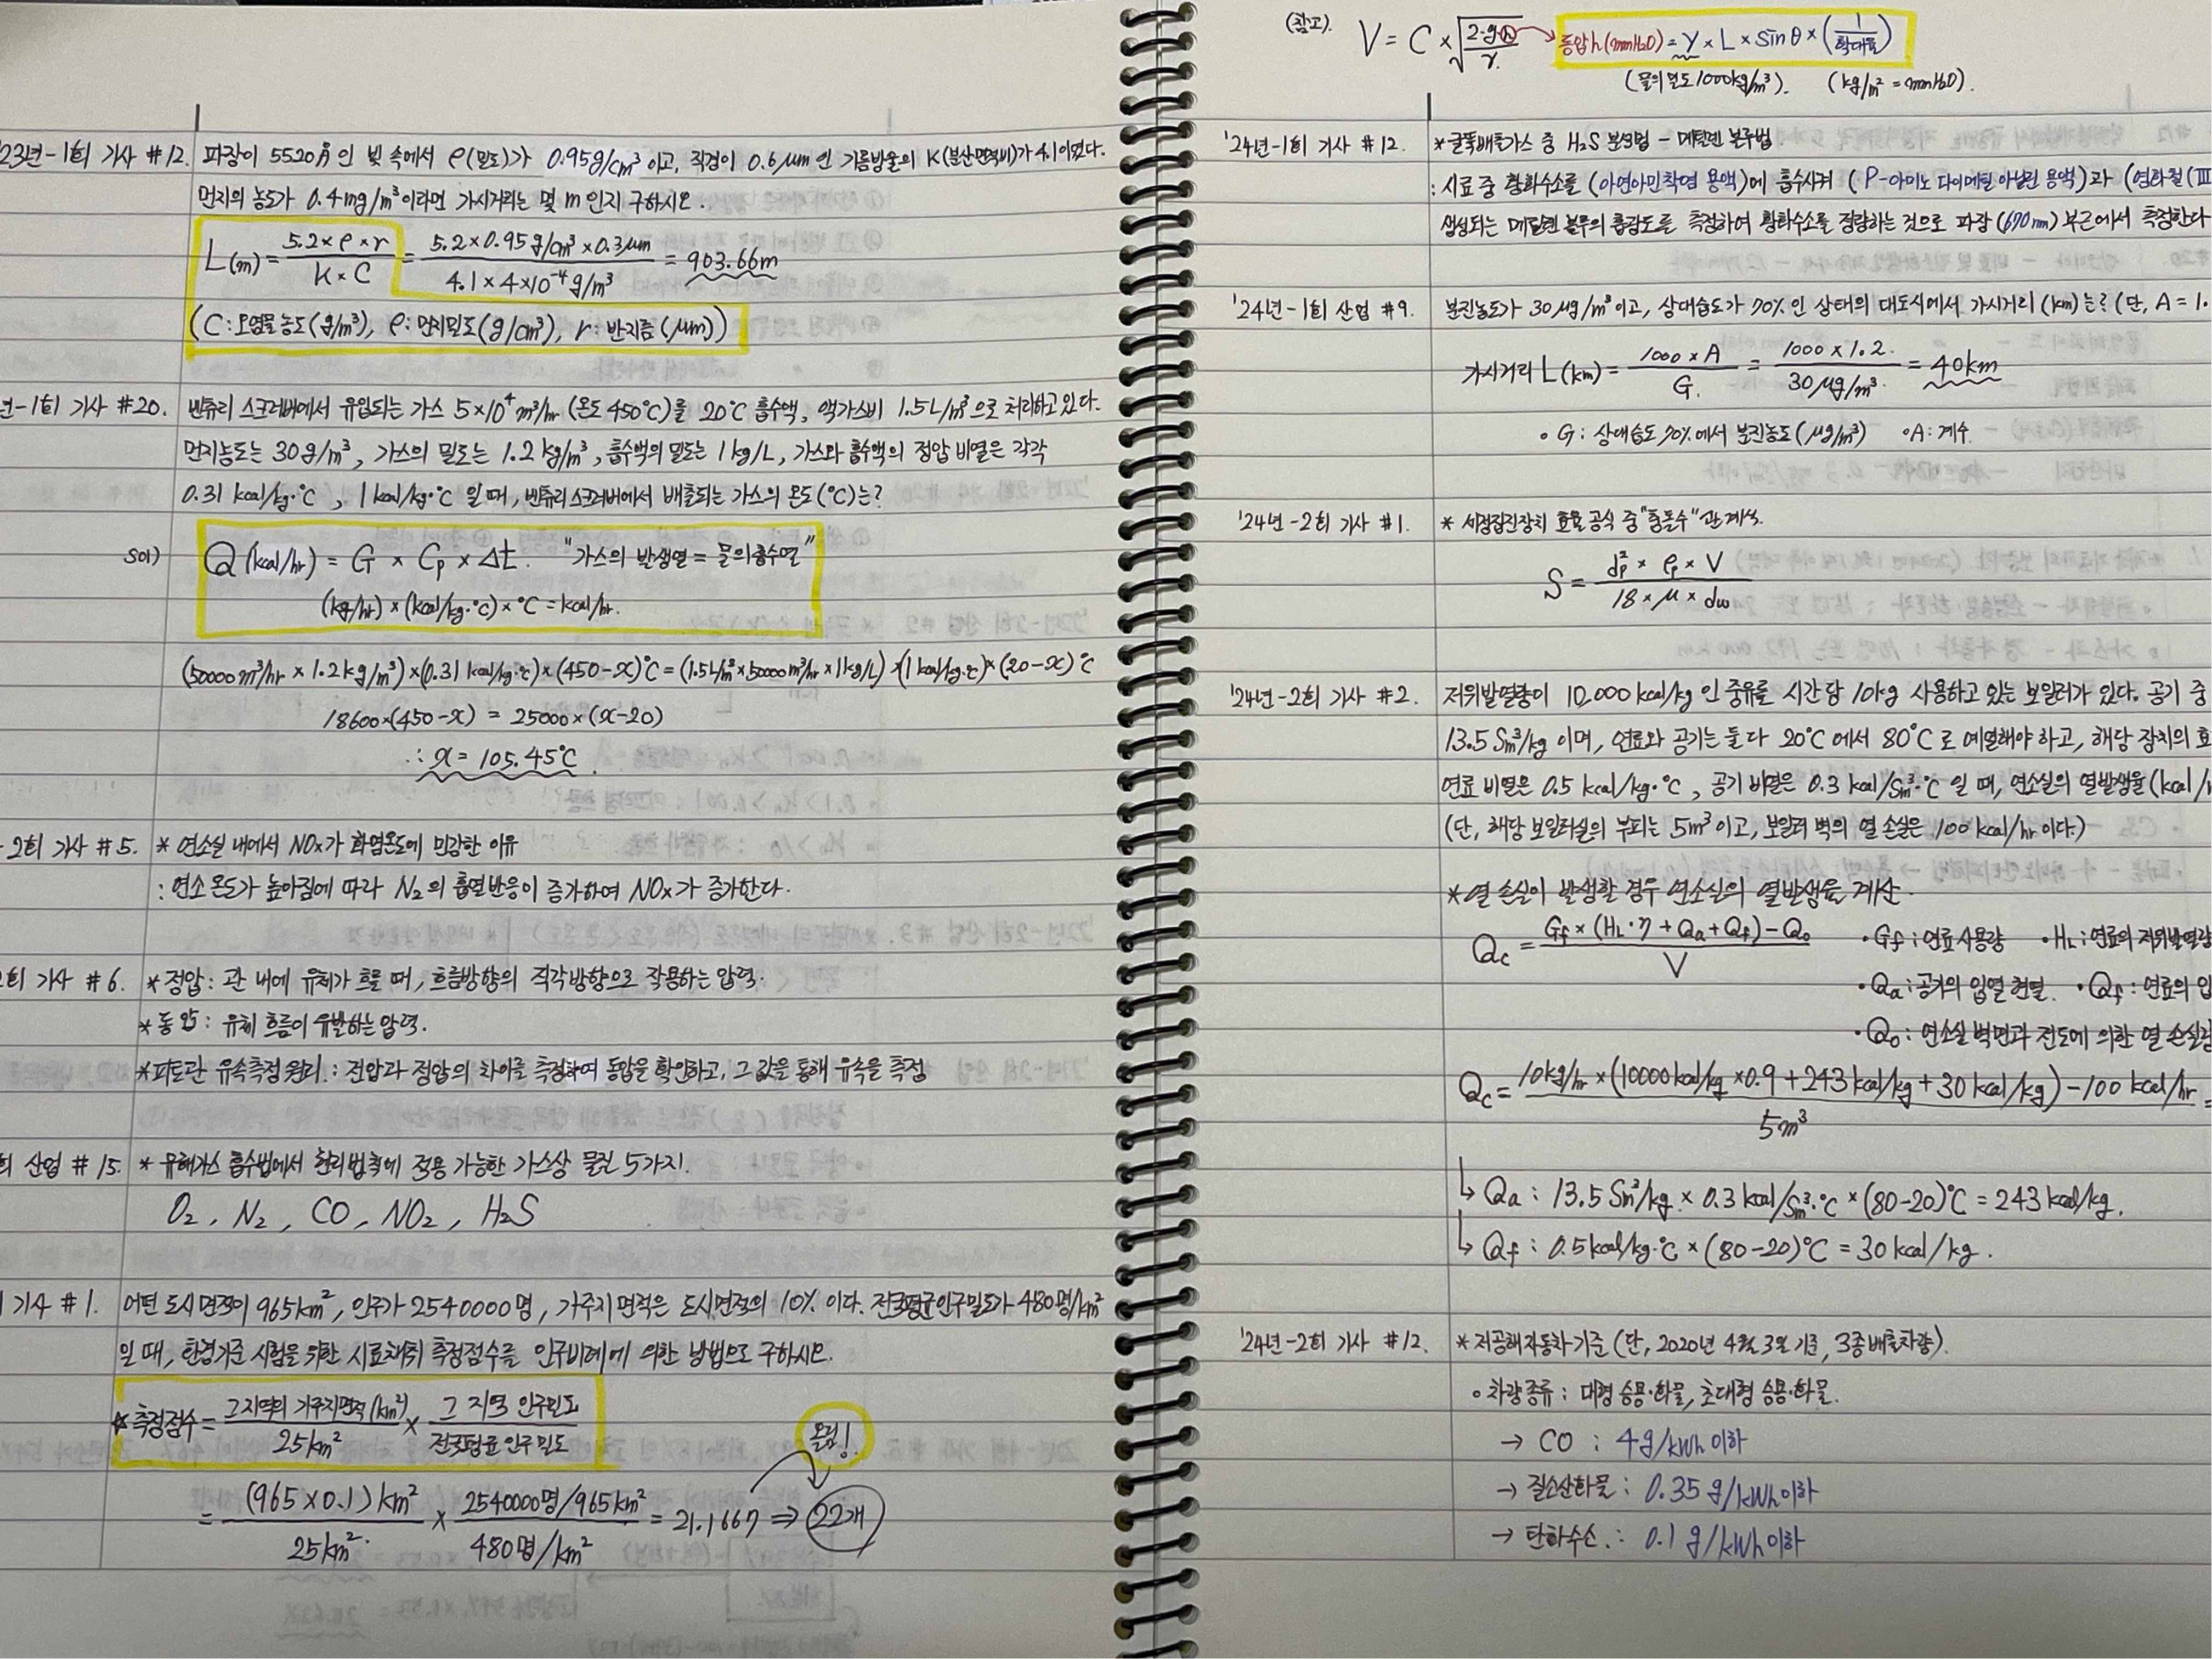 23년-1회 기사 #12. 파장이 5520Å인 빛 속에서 ρ(밀도)가 0.95g/cm³이고, 직경이 0.6μm인 기름방울의 K(분산면적비)가 4.1이었다.
먼지의 농도가 0.4mg/m³이라면 가시거리는 몇 m인지 구하시오.
L(m) = (5.2×ρ×r)/(K×C) = (5.2×0.95g/cm³×0.3μm)/(4.1×4×10⁻⁴g/m³) = 903.66m
(C: 오염물 농도(g/m³), ρ: 먼지밀도(g/cm³), r: 반지름(μm))
년-1회 기사 #20. 벤츄리 스크러버에서 유입되는 가스 5×10⁴m³/hr (온도 450℃)를 20℃ 흡수액, 액가스비 1.5L/m³으로 처리하고 있다.
먼지농도는 30g/m³, 가스의 밀도는 1.2kg/m³, 흡수액의 밀도는 1kg/L, 가스와 흡수액의 정압 비열은 각각
0.31 kcal/kg·℃, 1 kcal/kg·℃ 일 때, 벤츄리스크러버에서 배출되는 가스의 온도(℃)는?
sol) Q(kcal/hr) = G × Cp × Δt. "가스의 발생열 = 물의 흡수열"
(kg/hr)×(kcal/kg·℃)×℃ = kcal/hr.
(50000m³/hr × 1.2kg/m³)×(0.31 kcal/kg·℃)×(450-x)℃ = (1.5L/m³×50000m³/hr×1kg/L)×(1kcal/kg·℃)×(20-x)℃
18600×(450-x) = 25000×(x-20)
∴ x = 105.45℃.
-2회 기사 #5. *연소실 내에서 NOx가 화염온도에 민감한 이유
: 연소 온도가 높아짐에 따라 N₂의 흡열반응이 증가하여 NOx가 증가한다.
2회 기사 #6. *정압: 관 내에 유체가 흐를 때, 흐름방향의 직각방향으로 작용하는 압력.
*동압: 유체 흐름이 유발하는 압력.
*피토관 유속측정 원리: 전압과 정압의 차이를 측정하여 동압을 확인하고, 그 값을 통해 유속을 측정
회 산업 #15. *유해가스 흡수법에서 헨리법칙에 적용 가능한 가스상 물질 5가지.
O₂, N₂, CO, NO₂, H₂S
기사 #1. 어떤 도시면적이 965km², 인구가 2540000명, 가주지면적은 도시면적의 10%이다. 전국평균인구밀도가 480명/km²
일 때, 환경기준 시험을 위한 시료채취 측정점수를 인구비례에 의한 방법으로 구하시오.
☆측정점수 = 그 지역의 가주지면적(km²)/25km² × 그 지역 인구밀도/전국평균 인구밀도
올림!
= (965×0.1)km²/25km² × (2540000명/965km²)/(480명/km²) = 21.1667 ⇒ 22개
(참고). V = C × √(2·g·h/γ) → 동압h(mmH₂O) = γ × L × sinθ × (1/확대율)
(물의 밀도 1000kg/m³). (kg/m² = mmH₂O).
'24년-1회 기사 #12. *굴뚝배출가스 중 H₂S 분석법 - 메틸렌 블루법.
: 시료 중 황화수소를 (아연아민착염 용액)에 흡수시켜 (P-아미노 다이메틸 아닐린 용액)과 (염화철(Ⅲ
생성되는 메틸렌 블루의 흡광도를 측정하여 황화수소를 정량하는 것으로 파장(670nm) 부근에서 측정한다
'24년-1회 산업 #9. 분진농도가 30μg/m³이고, 상대습도가 70%인 상태의 대도시에서 가시거리(km)는? (단, A = 1.
가시거리 L(km) = (1000×A)/G = (1000×1.2)/(30μg/m³) = 40km
◦G: 상대습도 70%에서 분진농도(μg/m³) ◦A: 계수
'24년-2회 기사 #1. *세정집진장치 효율 공식 중 "충돌수" 관계식.
S = (dp² × ρp × V)/(18 × μ × dw)
'24년-2회 기사 #2. 저위발열량이 10,000kcal/kg인 중유를 시간당 10kg 사용하고 있는 보일러가 있다. 공기 중
13.5Sm³/kg이며, 연료와 공기는 둘다 20℃에서 80℃로 예열해야 하고, 해당 장치의 효
연료 비열은 0.5 kcal/kg·℃, 공기 비열은 0.3 kcal/Sm³·℃ 일 때, 연소실의 열발생율(kcal/
(단, 해당 보일러실의 부피는 5m³이고, 보일러 벽의 열 손실은 100 kcal/hr이다.)
*열 손실이 발생할 경우 연소실의 열발생율 계산.
Qc = (Gf×(HL·η + Qa + Qf) - Qo)/V ·Gf: 연료사용량 ·HL: 연료의 저위발열량
·Qa: 공기의 입열 현열. ·Qf: 연료의 입
·Qo: 연소실 벽면과 전도에 의한 열 손실량
Qc = (10kg/hr×(10000kcal/kg×0.9 + 243kcal/kg + 30kcal/kg) - 100kcal/hr)/5m³ =
↳ Qa: 13.5Sm³/kg × 0.3kcal/Sm³·℃ × (80-20)℃ = 243kcal/kg.
↳ Qf: 0.5kcal/kg·℃ × (80-20)℃ = 30kcal/kg.
'24년-2회 기사 #12. *저공해자동차기준 (단, 2020년 4월 3일 기준, 3종배출차량).
◦차량종류: 대형 승용·화물, 초대형 승용·화물.
→ CO: 4g/kWh이하
→ 질소산화물: 0.35g/kWh이하
→ 탄화수소.: 0.1g/kWh이하